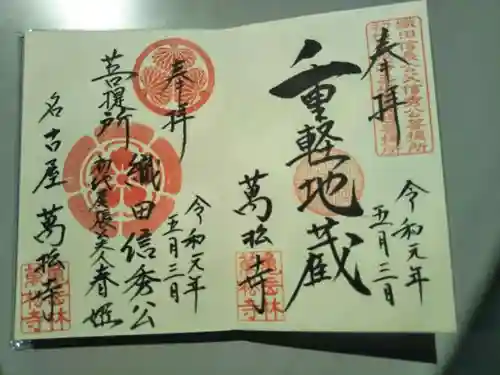 奉拝
重軽地蔵
萬松寺
令和元年
五月三日
奉拝
織田信秀公
菩提所
初代尾張夫人春姫
令和元年
五月三日
名古屋 萬松寺